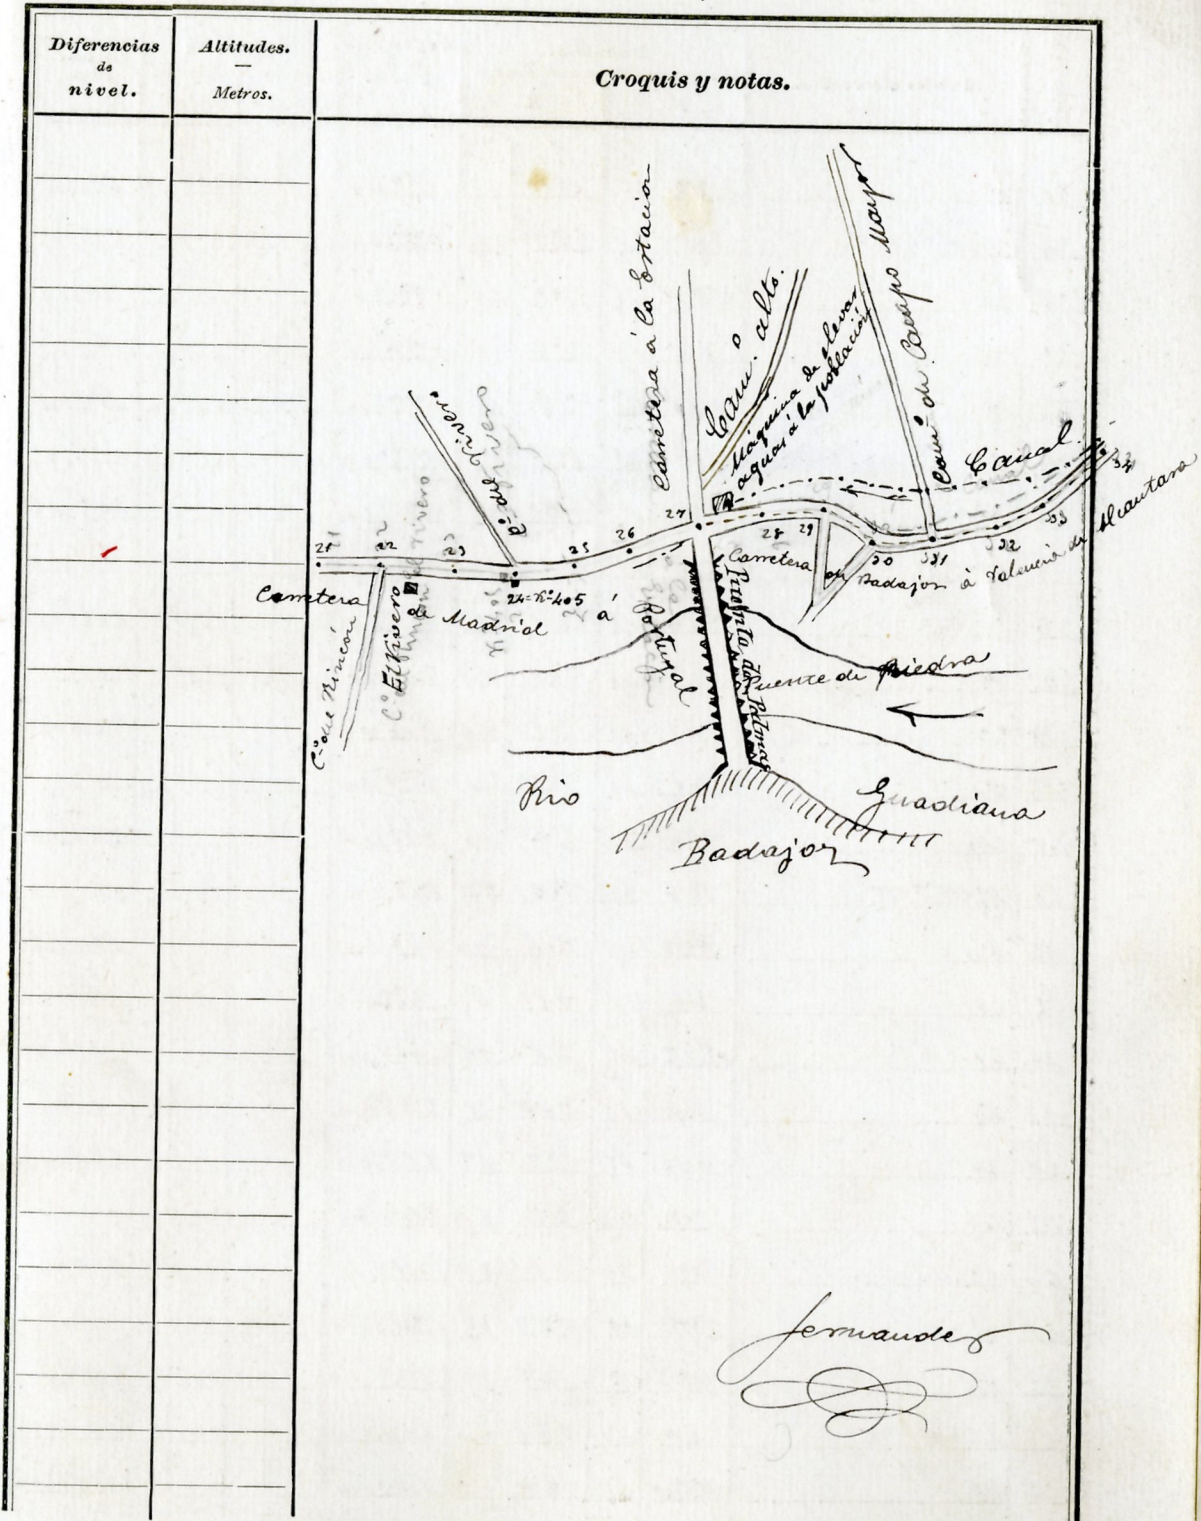 Diferencias
de
nivel.
Altitudes.
Metros.
Croquis y notas.
Carretera á la Estacion
Camº. alto.
Máquina de elevar
aguas á la población
Camº de Campo Mayor
Canal
Cº del Rivero
21
22
23
24=Kº405
25
26
27
28
29
30
31
32
33
34
Carretera
de Madrid á
Portugal
Carretera de Badajoz á Valencia de Alcantara
Cº de Rincón
El Rivero
Puente de Piedra
Puerta de Palmas
Rio
Guadiana
Badajoz
Fernandez